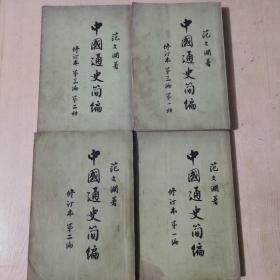 范文瀾著
中國通史简编
修订本 第三编 第二册
范文瀾著
中國通史简编
修订本 第三编 第一册
范文瀾著
中國通史简编
修订本 第二编
范文瀾著
中國通史简编
修订本 第一编